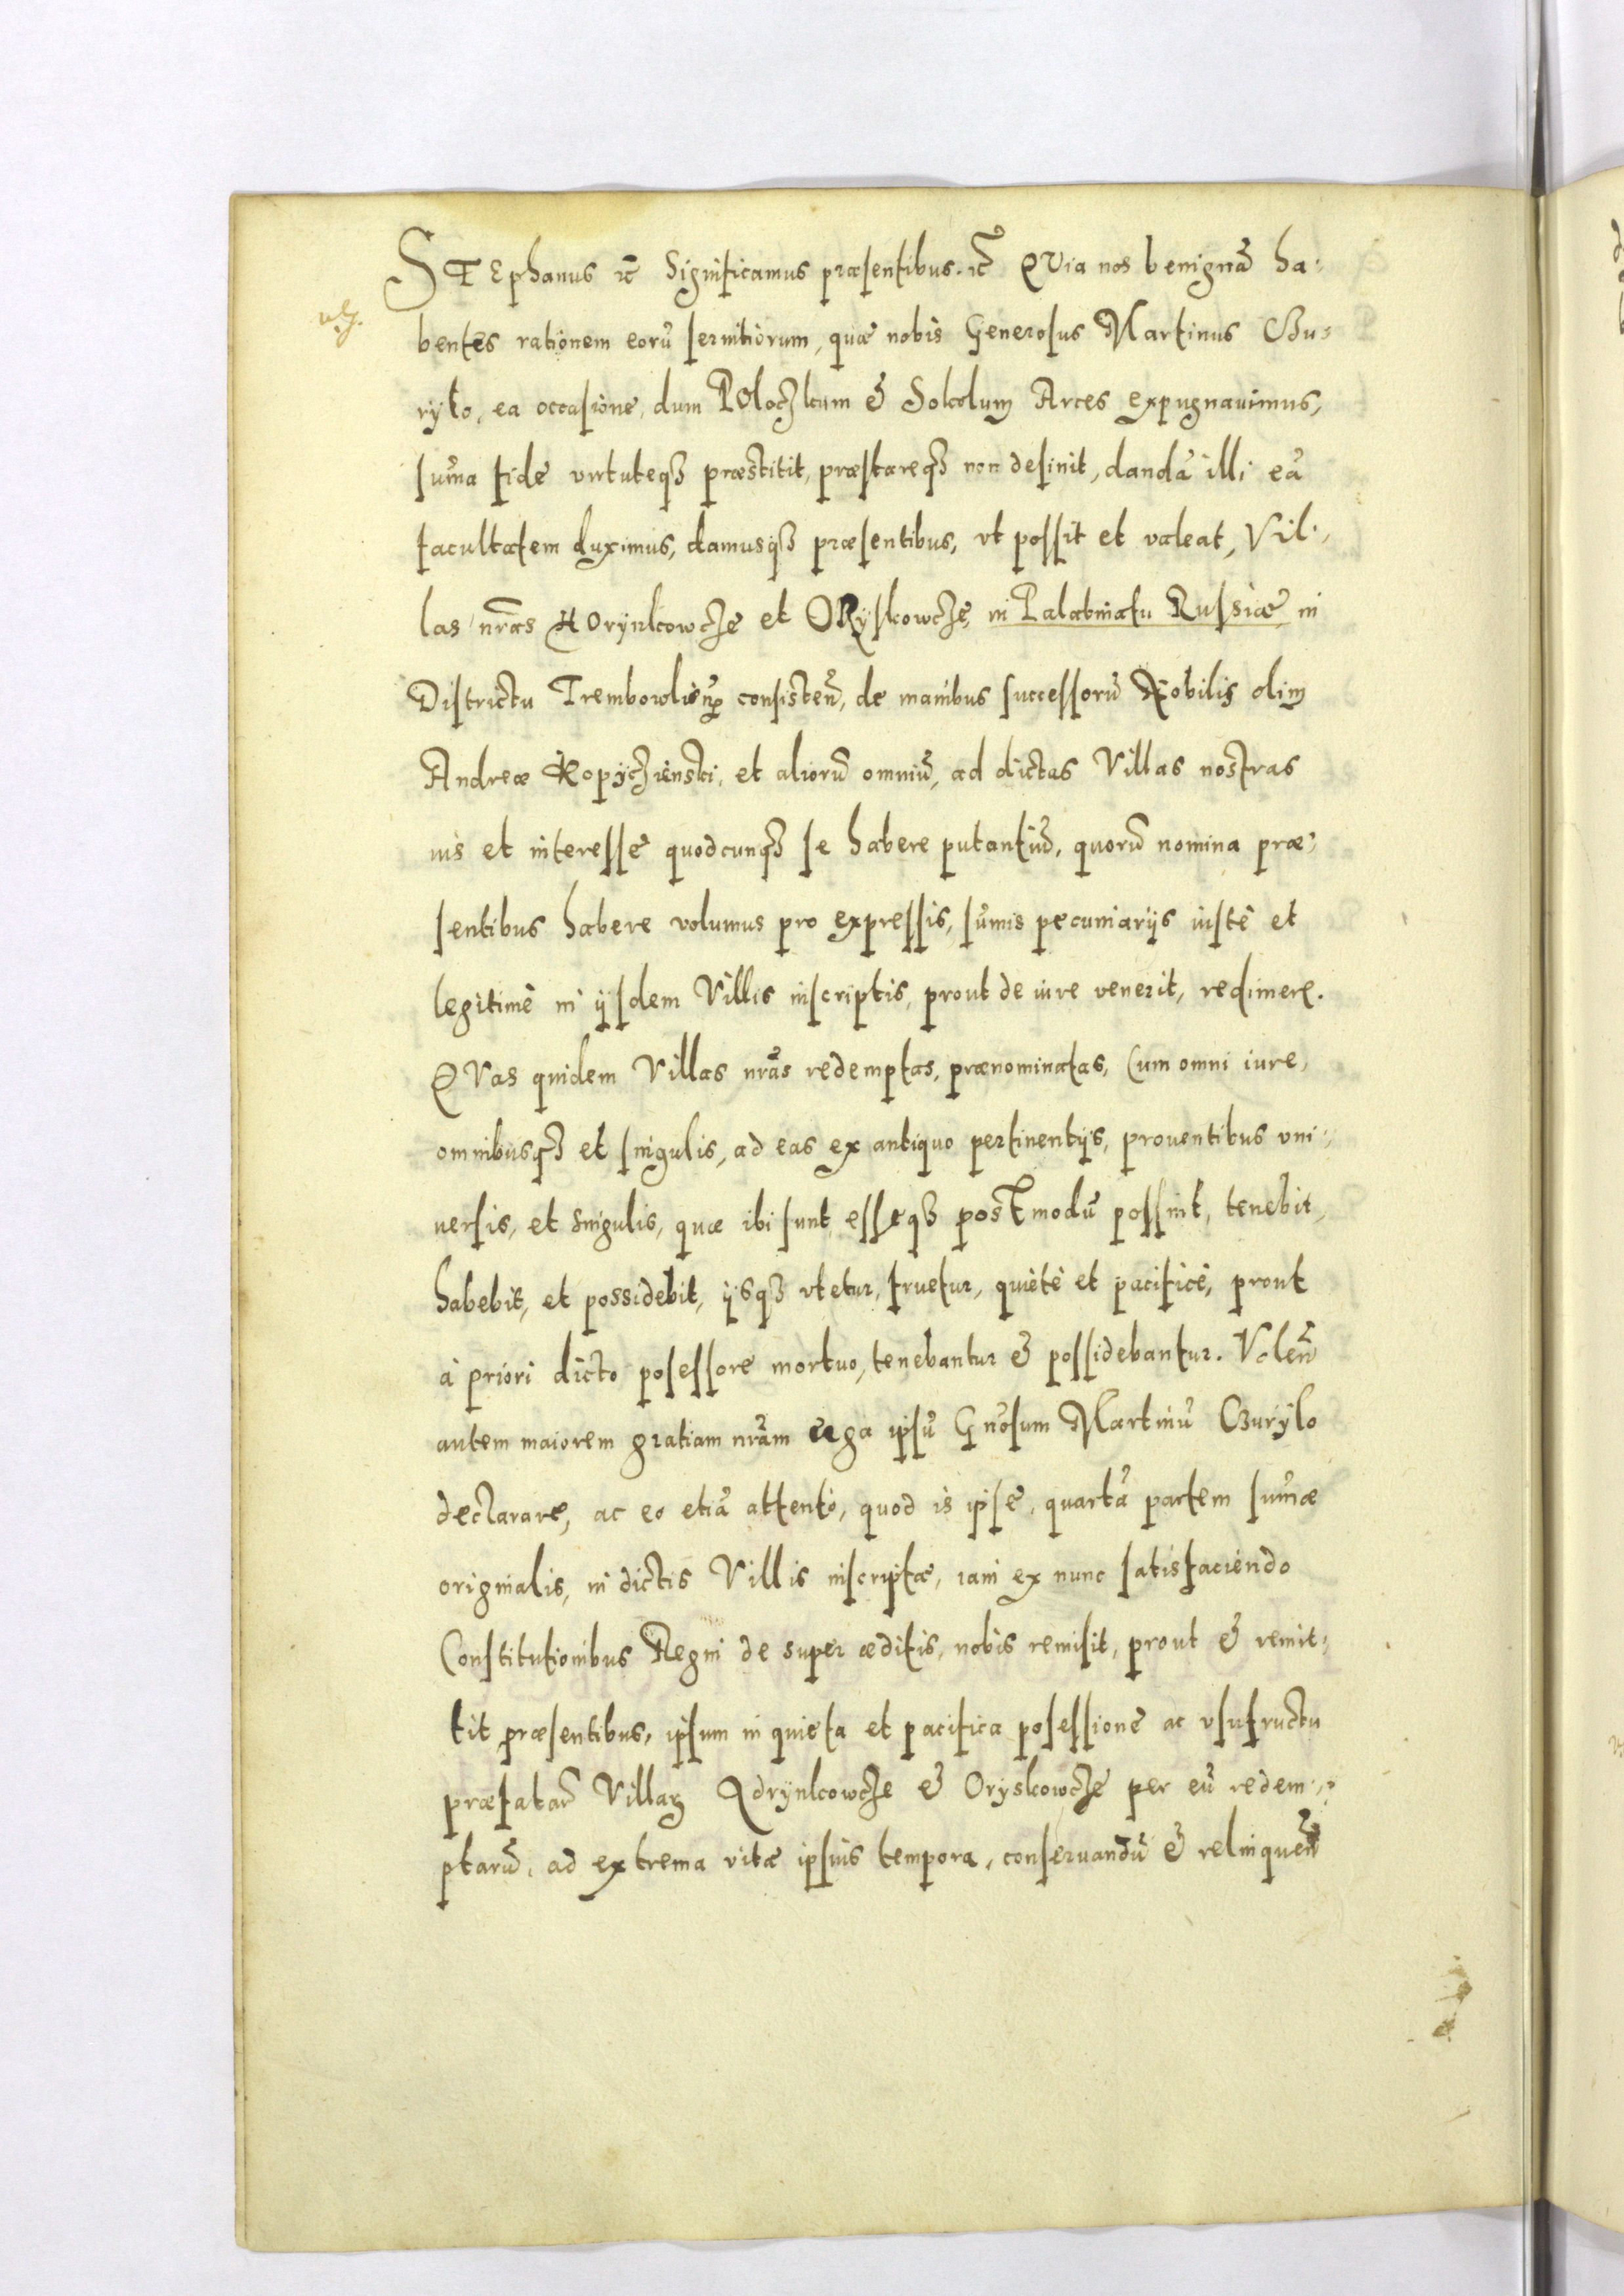 STEphanus etc̃ Significamus præsentibus. etc̃ QVia nos benignã ha:
bentes rationem eorũ seruitiorum, quæ nobis Generosus Martinus Bu:
ryło, ea occasione, dum POloczkum & Sokolum Arces expugnauimus,
sum̃a fide virtuteqȝ præstitit, præstareqȝ non desinit, dandã illi eã
facultatem duximus, damusqȝ præsentibus, vt possit et valeat, Vil:
las nr̃as HOrynkowcze et ORyskowcze, in Palatinatu Russiæ, in
Districtu Trembowlien̄ consisten̄, de manibus successorũ Nobilis olim
Andreæ Kopyczienski, et aliorũ omniũ, ad dictas Villas nostras
ius et interesse quodcunqȝ se habere putantiũ, quorũ nomina præ:
sentibus habere volumus pro expressis, sum̃is pecuniarijs iustè et
legitimè in ijsdem Villis inscriptis, prout de iure venerit, redimere.
QVas quidem Villas nr̃as redemptas, prænominatas, Cum omni iure,
omnibusqȝ et singulis, ad eas ex antiquo pertinentijs, prouentibus vni:
uersis, et singulis, quæ ibi sunt, esseqȝ postmodũ possint, tenebit,
habebit, et possidebit, ijsqȝ vtetur, fruetur, quietè et pacificè, prout
à priori dicto posessore mortuo, tenebantur & possidebantur. Volen̄
autem maiorem gratiam nr̃am erga ipsũ Gn̄osum Martinũ Buryło
declarare, ac eo etiã attento, quod is ipse, quartã partem sum̃æ
originalis, in dictis Villis inscriptæ, iam ex nunc satisfaciendo
Constitutionibus Regni de super æditis, nobis remisit, prout & remit:
tit præsentibus, ipsum in quieta et pacifica posessione ac vsufructu
præfatar̃ Villarȝ Hdrynkowcze & Oryskowcze per eũ redem:
ptarũ, ad extrema vitæ ipsius tempora, conseruandũ & relinquen̄